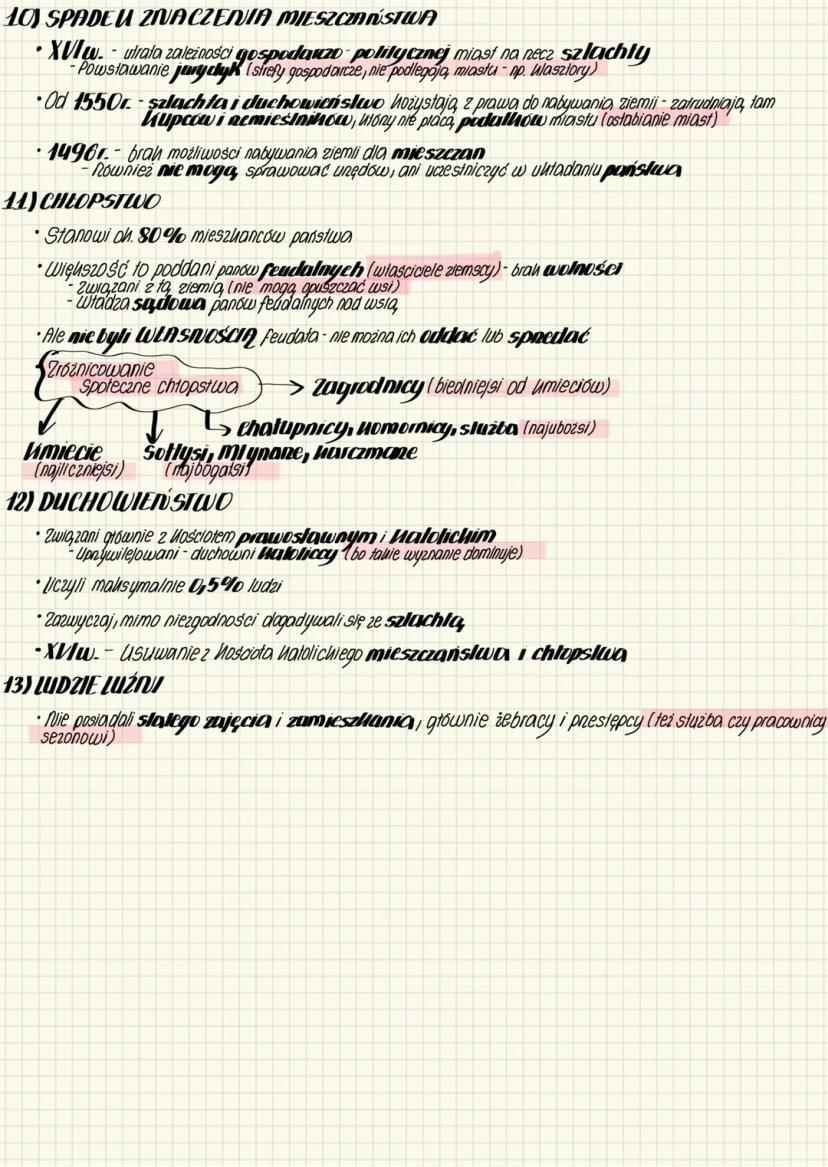 10) SPADEK ZNACZENIA MIESZCZAŃSTWA
• XVI w. - utrata zależności gospodarczo-politycznej miast na rzecz szlachty
- Powstawanie jurydyk (strefy gospodarcze, nie podlegają miastu - np. klasztory)
• Od 1550r. - szlachta i duchowieństwo korzystają z prawa do nabywania ziemii - zatrudniają tam
kupców i rzemieślników, którzy nie płacą podatków miastu (osłabianie miast)
• 1496r. - brak możliwości nabywania ziemii dla mieszczan
- Również nie mogą sprawować urzędów, ani uczestniczyć w układaniu państwa
11) CHŁOPSTWO
• Stanowi ok. 80% mieszkańców państwa
• Większość to poddani panów feudalnych (właściciele ziemscy) - brak wolności
- Związani z tą ziemią (nie mogą opuszczać wsi)
- Władza sądowa panów feudalnych nad wsią
• Ale nie byli WŁASNOŚCIĄ feudała - nie można ich oddać lub sprzedać
Zróżnicowanie
społeczne chłopstwa
Zagrodnicy (biedniejsi od kmieciów)
Chałupnicy, komornicy, służba (najubożsi)
Kmiecie
(najliczniejsi)
Sołtysi, Młynarze, karczmarze
(najbogatsi)
12) DUCHOWIEŃSTWO
• Związani głównie z kościołem prawosławnym i katolickim
- Uprzywilejowani - duchowni katoliccy (bo takie wyznanie dominuje)
• Liczyli maksymalnie 0,5% ludzi
• Zazwyczaj, mimo niezgodności dogadywali się ze szlachtą
• XVI w. - Usuwanie z kościoła katolickiego mieszczaństwa i chłopstwa
13) LUDZIE LUŹNI
• Nie posiadali stałego zajęcia i zamieszkania, głównie żebracy i przestępcy (też służba czy pracownicy
sezonowi)